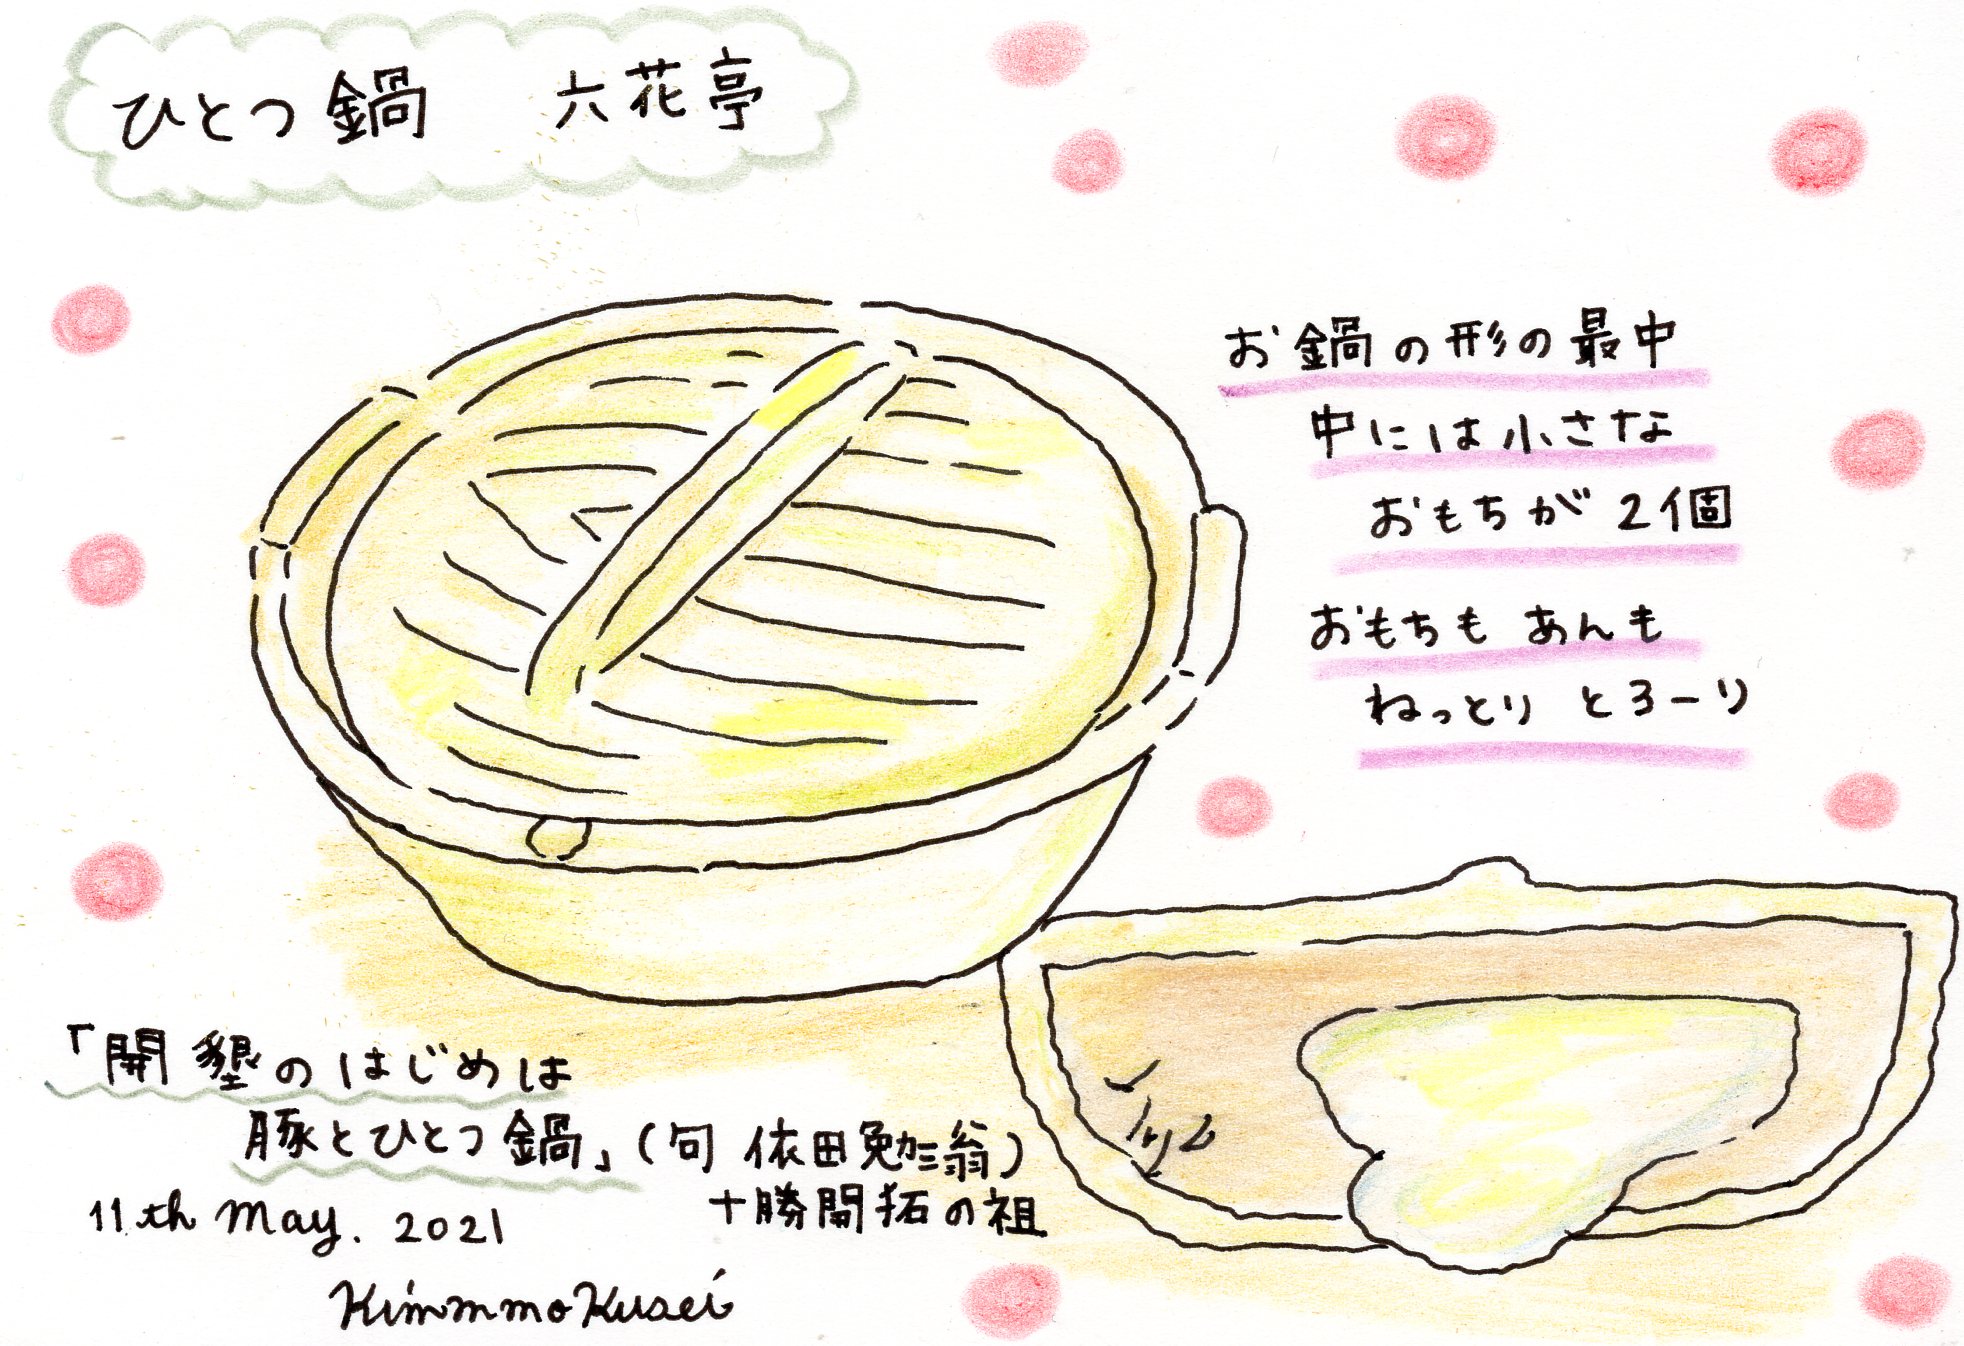 ひとつ鍋 六花亭
お鍋の形の最中
中には小さな
おもちが2個
おもちも あんも
ねっとり とろーり
「開墾のはじめは
豚とひとつ鍋」(句 依田勉三翁)
十勝開拓の祖
11th May. 2021
KimmmoKusei